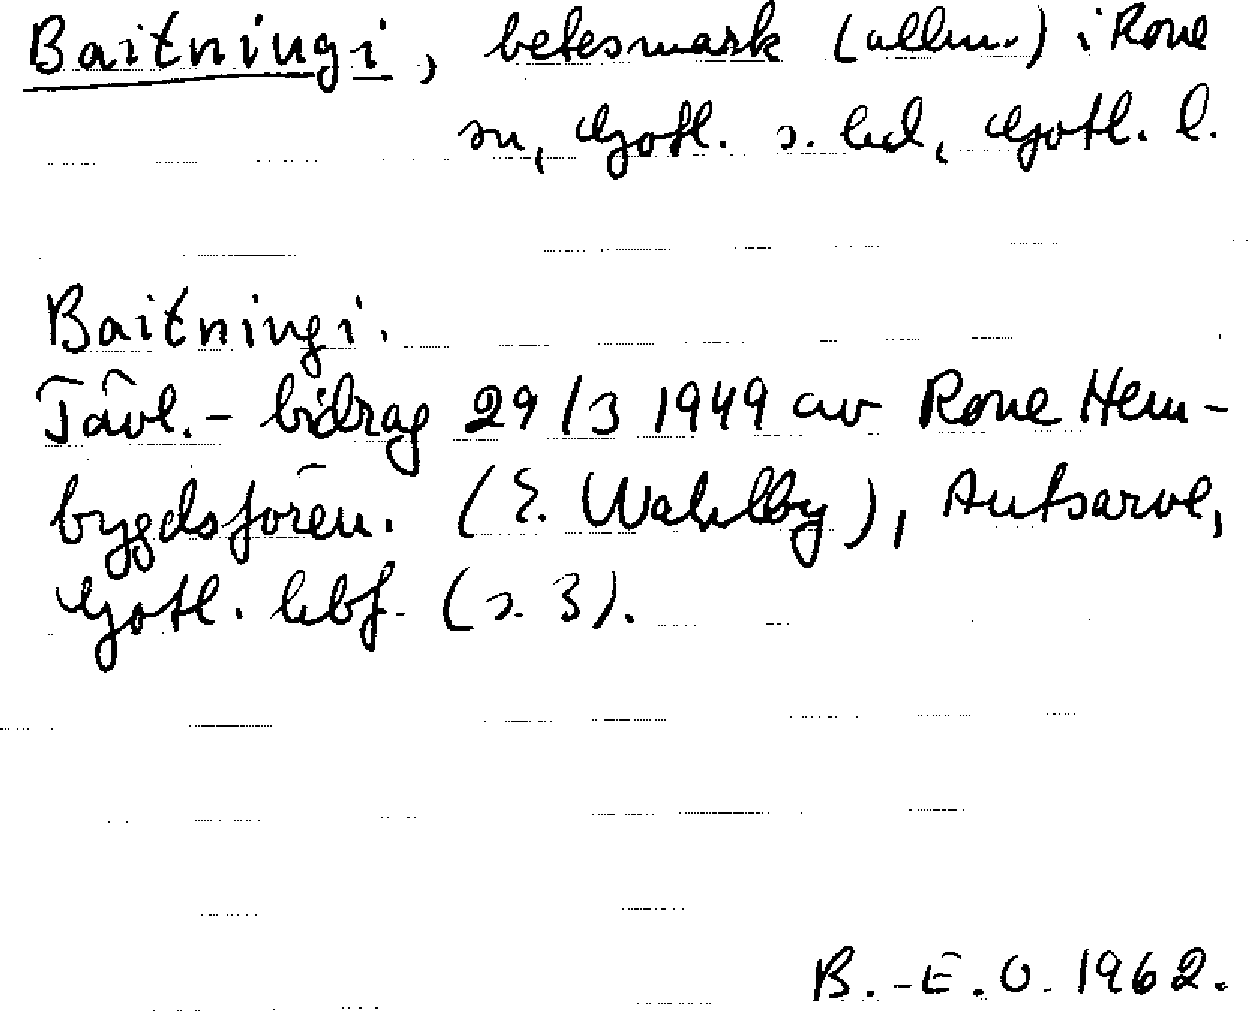 Baitningi, betesmark (allm.) i Rone
sn, Gotl. s. hd, Gotl. l.
Baitningi.
Tävl.- bidrag 29/3 1949 av Rone Hem-
bygdsfören. (E. Wahlby), Autsarve,
Gotl. hbf. (s. 3).
B.-E.O. 1962.